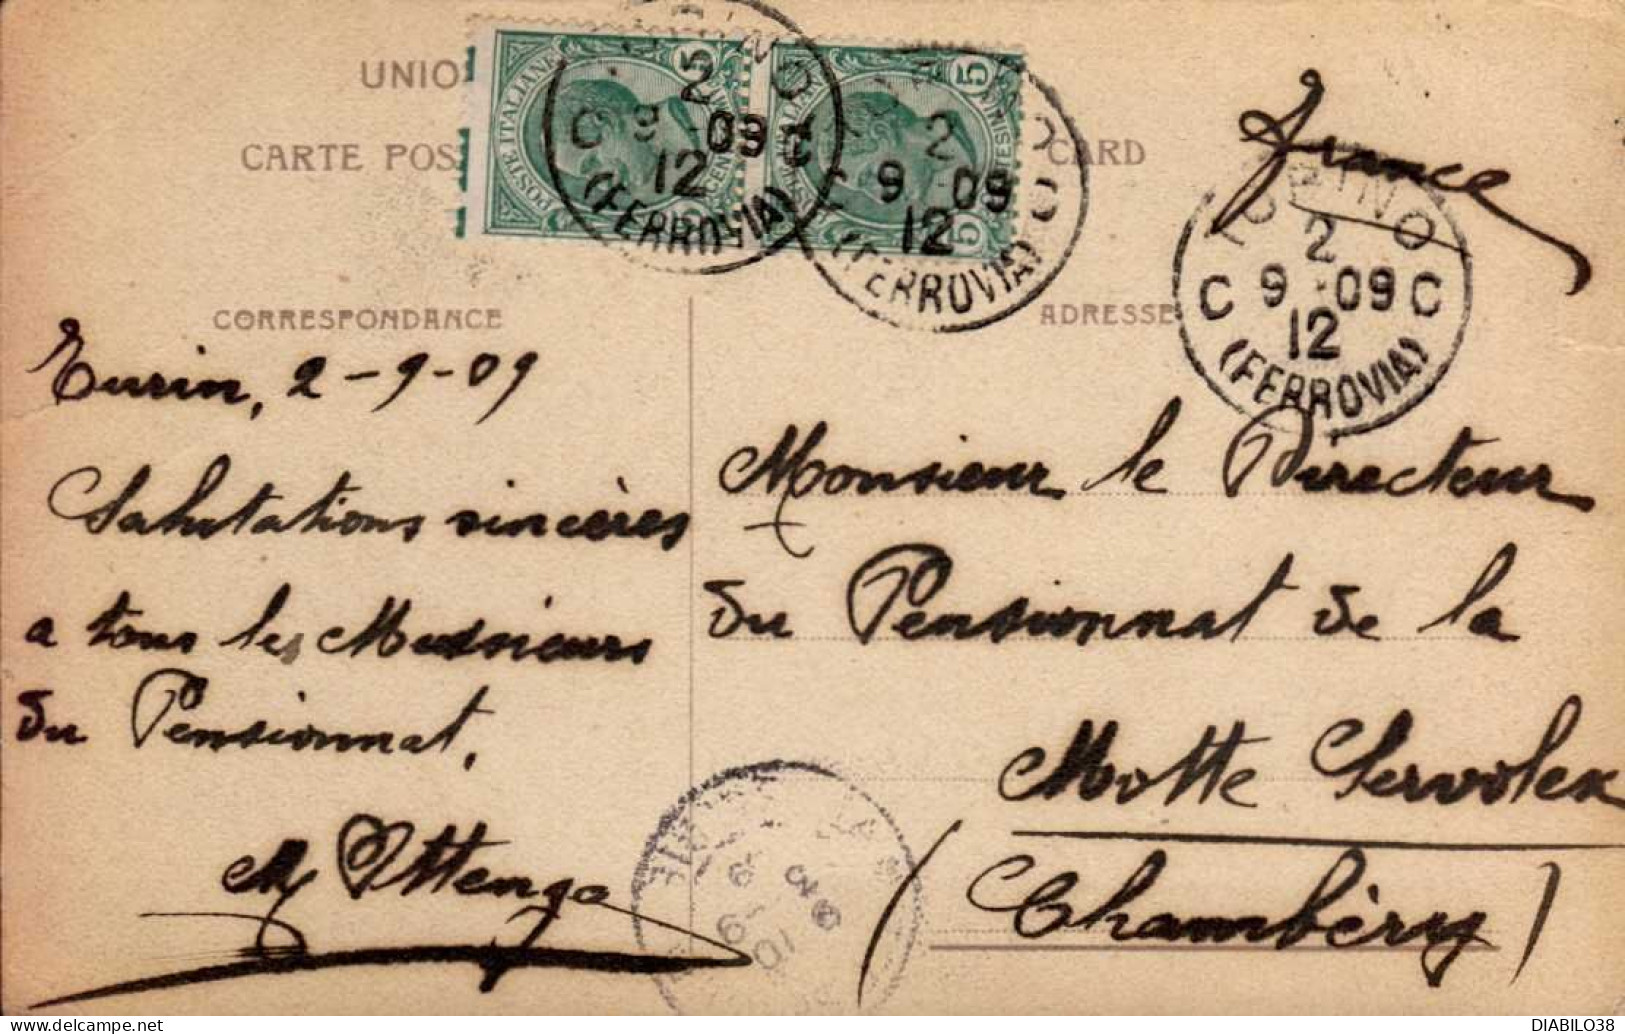 UNIO
CARTE POS
CARD
France
POSTE ITALIANE
5
5
5
TORINO
2
C 9 - 09 C
12
(FERROVIA)
2
C 9 - 09
12
(FERROVIA)
TORINO
2
C 9 - 09 C
12
(FERROVIA)
CORRESPONDANCE
ADRESSE
Turin, 2-9-09
Salutations sincères
a tous les Messieurs
du Pensionnat.
M Ottengo
Monsieur le Directeur
du Pensionnat de la
Motte Servolex
(Chambéry)
DIABILO38